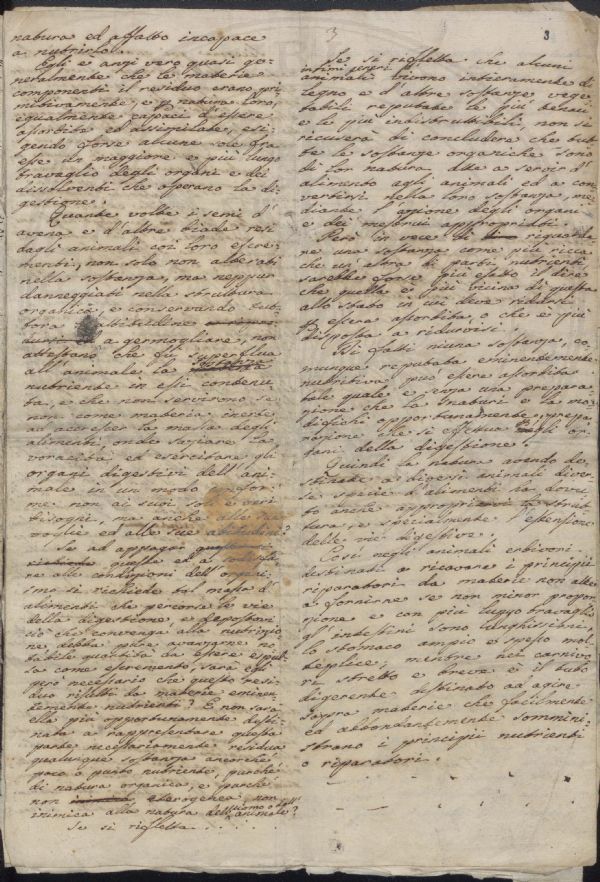 natura ed affatto incapace
a nutrirlo.
Egli e anzi vero quasi ge-
neralmente che le materie
componenti il residuo erano pri-
mitivamente, e p natura loro,
egualmente capaci d'essere
assorbite ed assimilate, esi-
gendo forse alcune sole fra
esse un maggiore e più lungo
travaglio degli organi e dei
dissolventi che operano la di-
gestione.
Quante volte i semi d'
avena e d'altre biade resi
dagli animali coi loro escre-
menti, non solo non alterati
nella sostanza, ma neppur
danneggiati nella struttura
organica, e conservando tut-
tora l'attitudine
a germogliare, non
attestano che fu superflua
all'animale la sostanza
nutriente in essi contenu-
ta, e che non servirono se
non come materia inerte
ad accrescer la massa degli
alimenti, onde saziare la
voracità ed esercitare gli
organi digestivi dell'ani-
male in un modo confor-
me non ai suoi soli e veri
bisogni, ma anche alle sue
voglie ed alle sue abitudini?
Se ad appagar
queste ed a soddisfa-
re alle condizioni dell'organi-
smo si richiede tal massa d'
alimenti che percorsa le vie
della digestione, e depostovi
ciò che convenga alla nutrizio-
ne, debba pure avanzarne no-
tabile quantità da essere espul-
sa come escremento, sarà egli
però necessario che questo resi-
duo risulti da materie eminen-
temente nutrienti? E non sarà
ella più opportunamente desti-
nata a rappresentare questa
parte necessariamente residua
qualunque sostanza ancorchè
poco o punto nutriente, purchè
di natura organica, e purchè
non eterogenea, non
inimica alla natura dell'uomo o dell'animale?
Se si rifletta . . . .
3
3
Se si rifletta che alcuni
infimi esseri
animali vivono intieramente di
legno e d'altre sostanze vege-
tabili reputate le più tenaci
e le più indistruttibili, non si
ricuserà di concludere che tut-
te le sostanze organiche sono
di lor natura atte a servir d'
alimento agli animali ed a con-
vertirsi nella loro sostanza, me-
diante l'azione degli organi
e dei mestrui appropriati.
Però in vece di riguarda-
re una sostanza come più ricca
che un'altra di parti nutrienti
sarebbe forse più esatto il dire
che quella è più vicina di questa
allo stato in cui deve ridursi
p essere assorbita, o che è più
disposta a ridurvisi.
Di fatti niuna sostanza, co-
munque reputata eminentemente
nutritiva può essere assorbita
tale quale e senza una prepara-
zione che la snaturi e la mo-
difichi opportunamente, prepa-
razione che si effettua negli or-
gani della digestione.
Quindi la natura avendo de-
stinate a diversi animali diver-
se specie d'alimenti ha dovu-
to anche appropriarvi la strut-
tura, e specialmente l'estensione
delle vie digestive.
Così negli animali erbivori
destinati a ricavare i principii
riparatori da materie non atte
a fornirne se non minor propor-
zione e con più lungo travaglio
gl'intestini sono lunghissimi,
lo stomaco ampio e spesso mol-
teplice; mentre nei carnivo-
ri stretto e breve è il tubo
digerente destinato ad agire
sopra materie che facilmente
ed abbondantemente sommini-
strano i principii nutrienti
o riparatori.